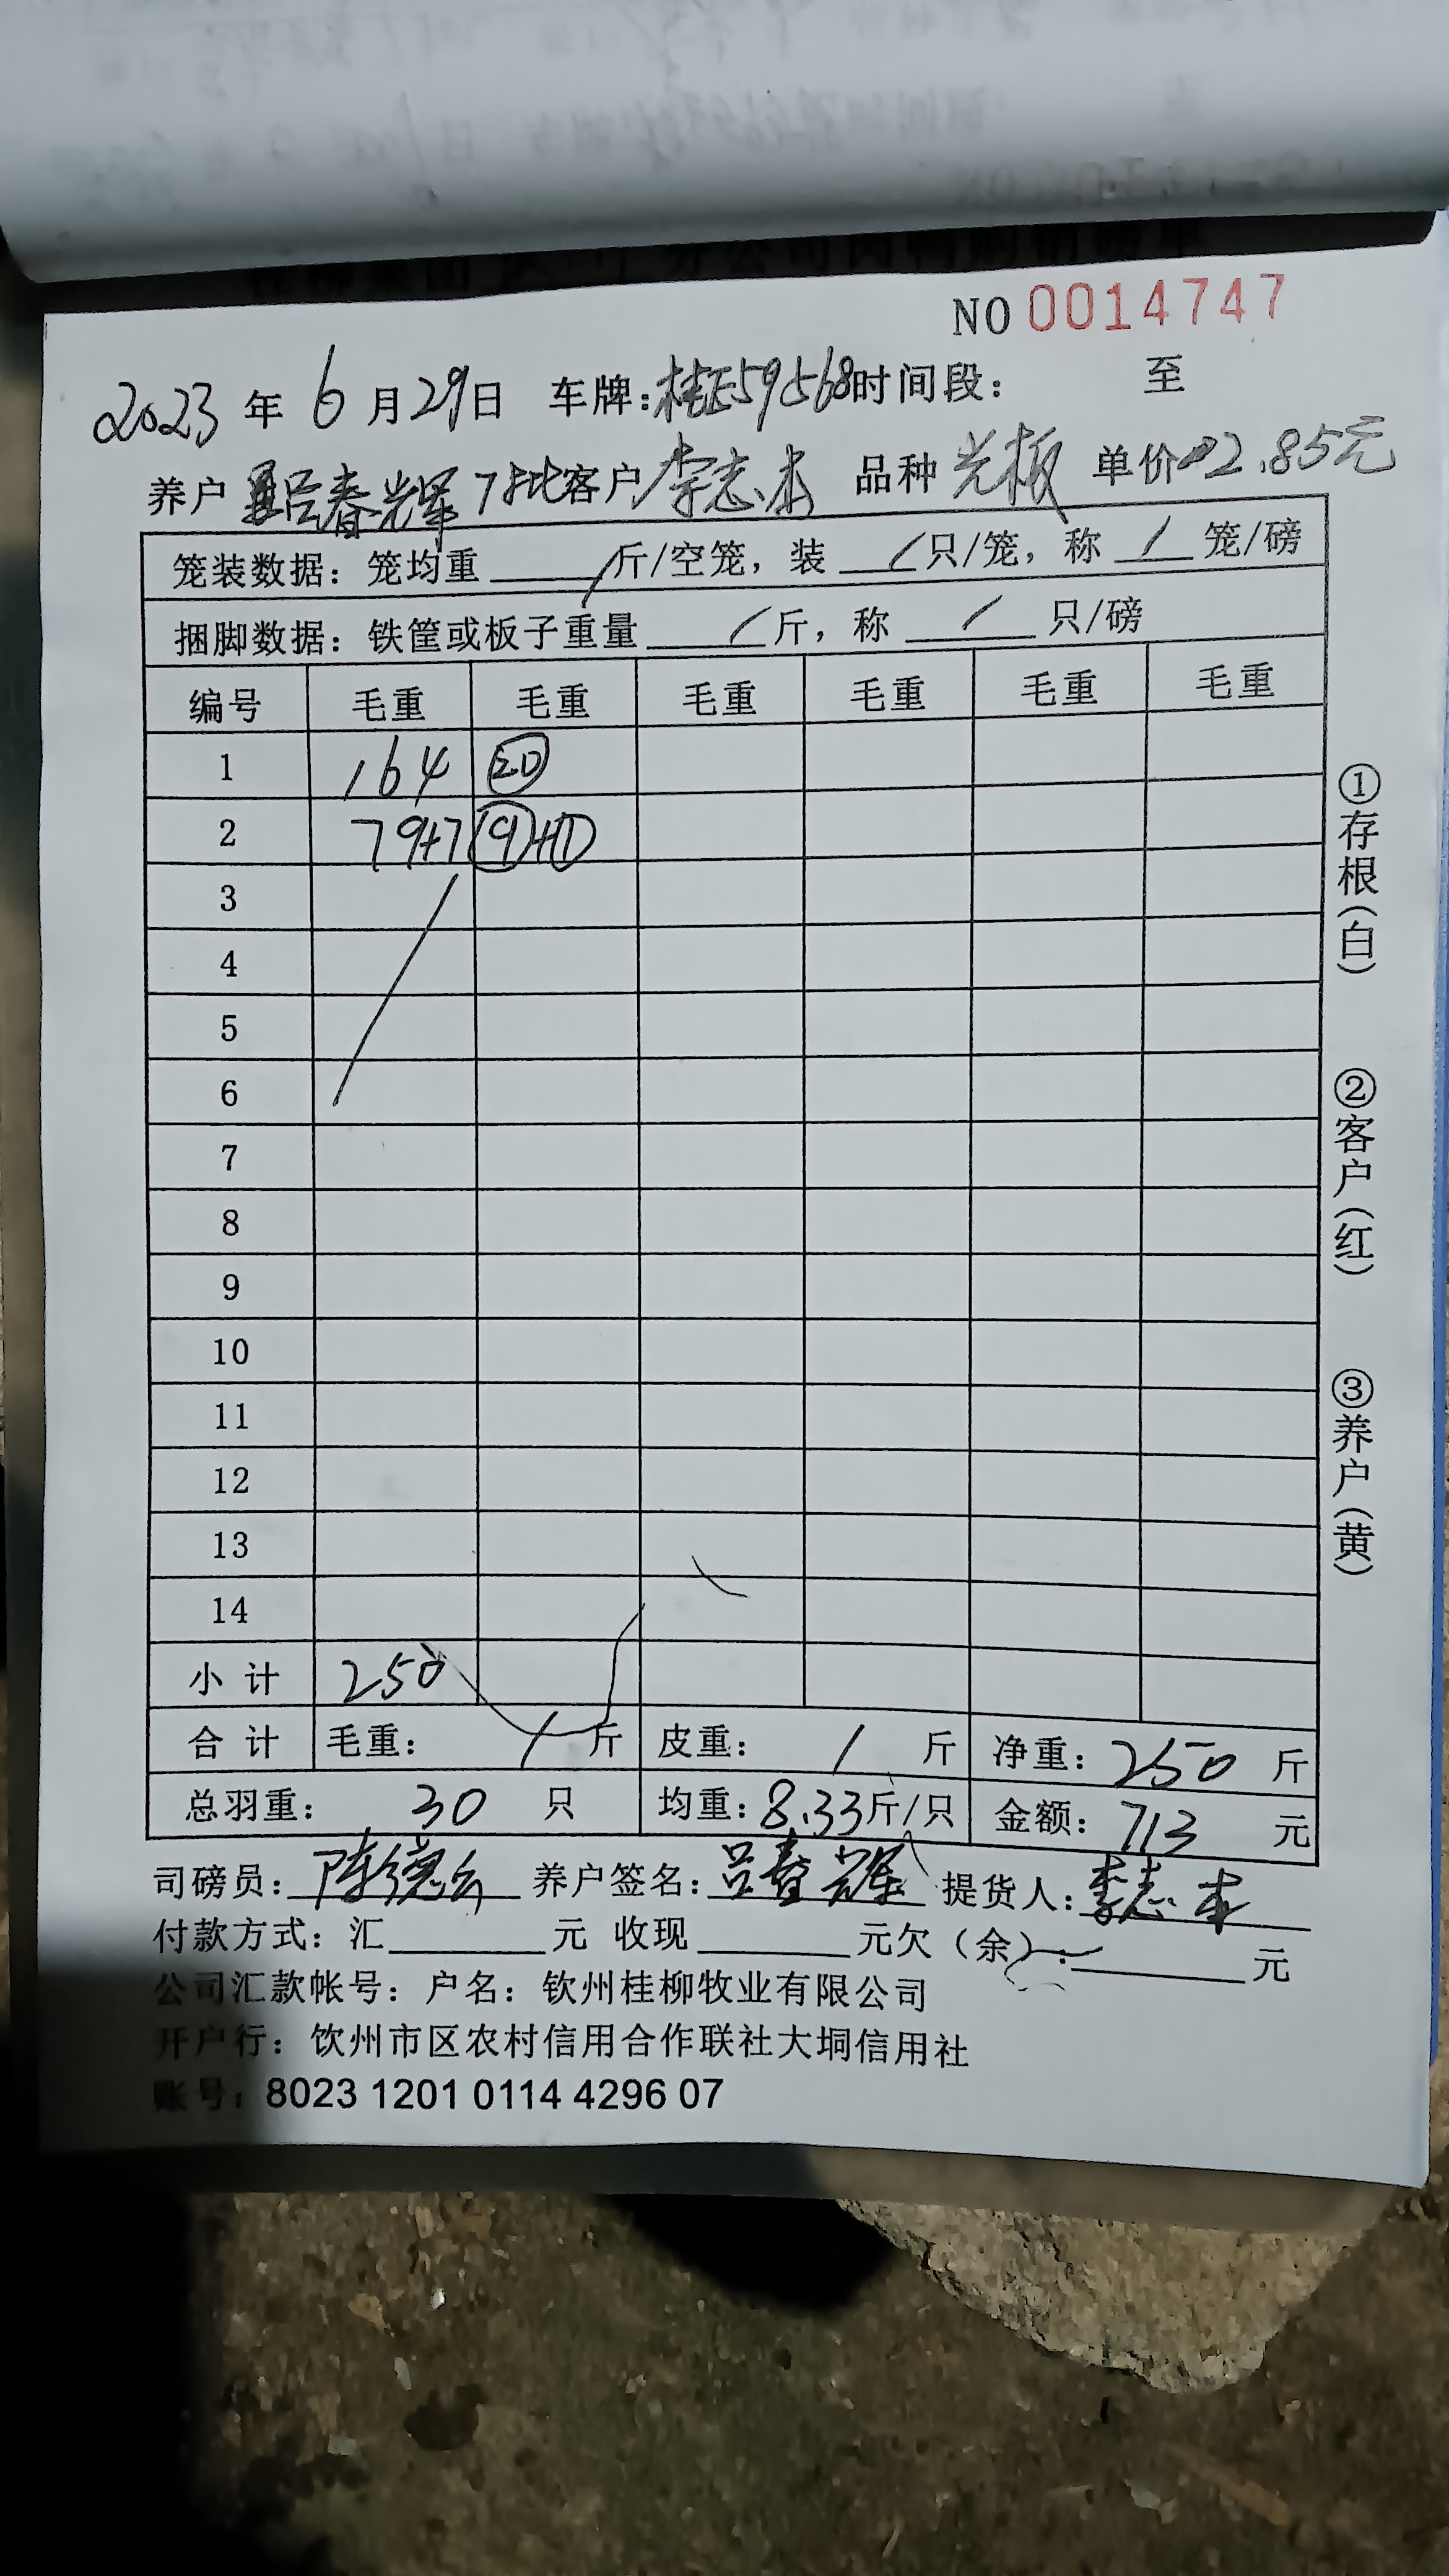 NO 0014747
2023年6月29日 车牌:桂E59568时间段: 至
养户 吕春辉7批客户李志本 品种 光板 单价 2.85元
笼装数据:笼均重 / 斤/空笼,装 / 只/笼,称 / 笼/磅
捆脚数据:铁筐或板子重量 / 斤,称 / 只/磅
编号 毛重 毛重 毛重 毛重 毛重 毛重
1 164 20
2 79+7 9+1
3
4
5
6
7
8
9
10
11
12
13
14
小计 250
合计 毛重: / 斤 皮重: / 斤 净重:250斤
总羽重: 30 只 均重:8.33斤/只 金额:713 元
司磅员:陈德云 养户签名:吕春辉 提货人:李志本
付款方式:汇 元 收现 元欠(余): 元
公司汇款帐号:户名:钦州桂柳牧业有限公司
开户行:钦州市区农村信用合作联社大垌信用社
账号:8023 1201 0114 4296 07
①存根(白)
②客户(红)
③养户(黄)